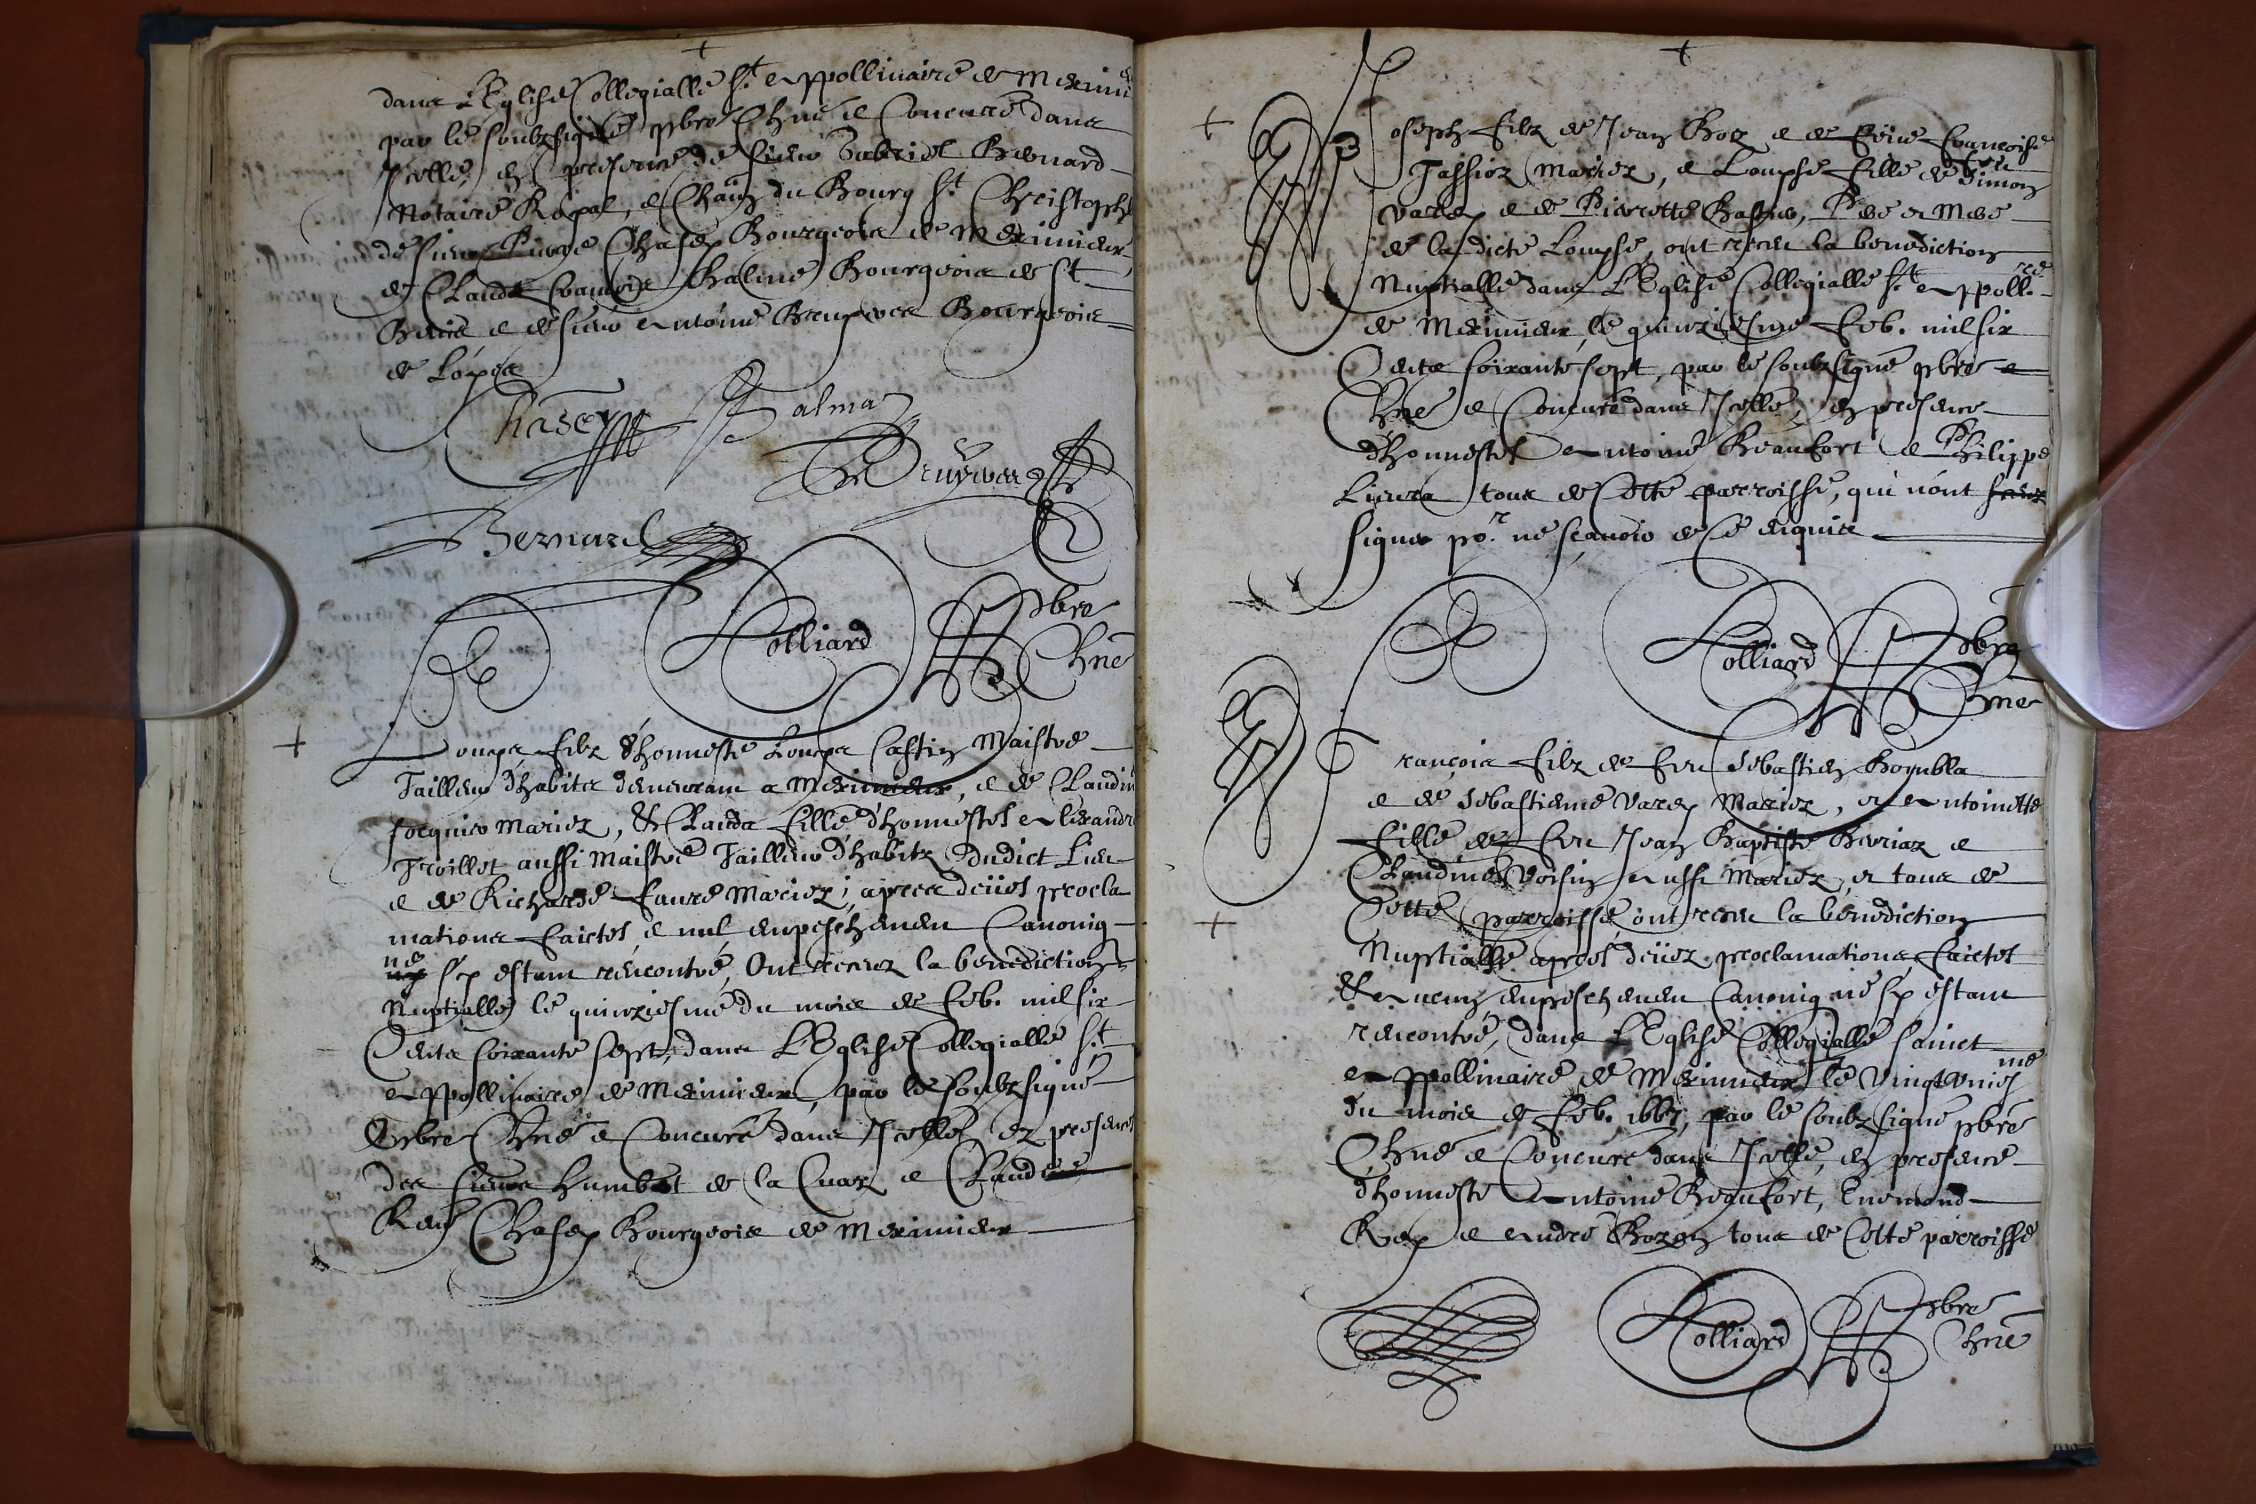 dans l'Eglise Collegialle St Appollinaire de Meximi
par le soubsigné pbre Chne & Concuré dans
Icelle, en presence de sieur Gabriel Bernard
Notaire Royal, & Chain du Bourg St Christophe
de sieur Chasey Bourgeois de Meximieux
de Claude François Balme Bourgeois de St
& de sieur Antoine Bruyeres Bourgeois
de Loyes
Chasey Balma
Bruyeres
Bernard
Colliard pbre
Chne
Louys filz d'honneste Louys Castin Maistre
Tailleur d'habits demeurant a Meximieux, & de Claudin
Jocquier Mariez, & Clauda fille d'honnestes Alexandre
Troillet aussi Maistre Tailleur d'habitz dudict Lieu
& de Richarde Faure Mariez, apres deües procla
mations faictes, & nul enpeschement Canoniq
ue s'y estant rencontré, Ont receuz la benediction
Nuptialle le quinziesme du mois de feb. mil six
Cents soixante sept, dans L'Eglise Collegialle St
Appollinaire de Meximieux, par le soubzsigné
pbre Chne & Concuré dans Icelle, en presence
des sieurs Humbert de la Cuaz & Claude
René Chasey Bourgeois de Meximieux
Joseph filz de Jean Boz & de feüe Françoise
Tassioz Mariez, & Louyse fille de feu Simon
Varey & de Pierrette Bastie, Pere et Mere
de ladicte Louyse, ont receu la benediction
Nuptialle dans L'Eglise Collegialle St Appollire
de Meximieux, le quinziesme feb. mil six
Cents soixante sept, par le soubzsigné pbre &
Chne & Concuré dans Icelle, en presence
d'honnestes Antoine Beaufort & Philippe
tous de Cette parroisse, qui n'ont
signer por ne sçavoir de Ce enquis
Colliard pbre
Chne
François filz de feu Sebastien Boyublla
& de Sebastienne Varey Mariez, et Antoinette
fille de feu Jean Baptiste & 
Claudine Voisin aussi Mariez, et tous de
Cette parroisse, ont receu la benediction
Nuptialle apres deües proclamations faictes
& Aucun enpeschement Canonique s'y estant
rencontré, dans L'Eglise Collegialle sainct
Appollinaire de Meximieux le Vingtuniesme
du mois de feb. 1667, par le soubzsigné pbre
Chne & Concuré dans Icelle, en presence
d'honneste Antoine Beaufort, Enemond
Rey & André Bozon tous de Cette parroisse
Colliard pbre
Chne